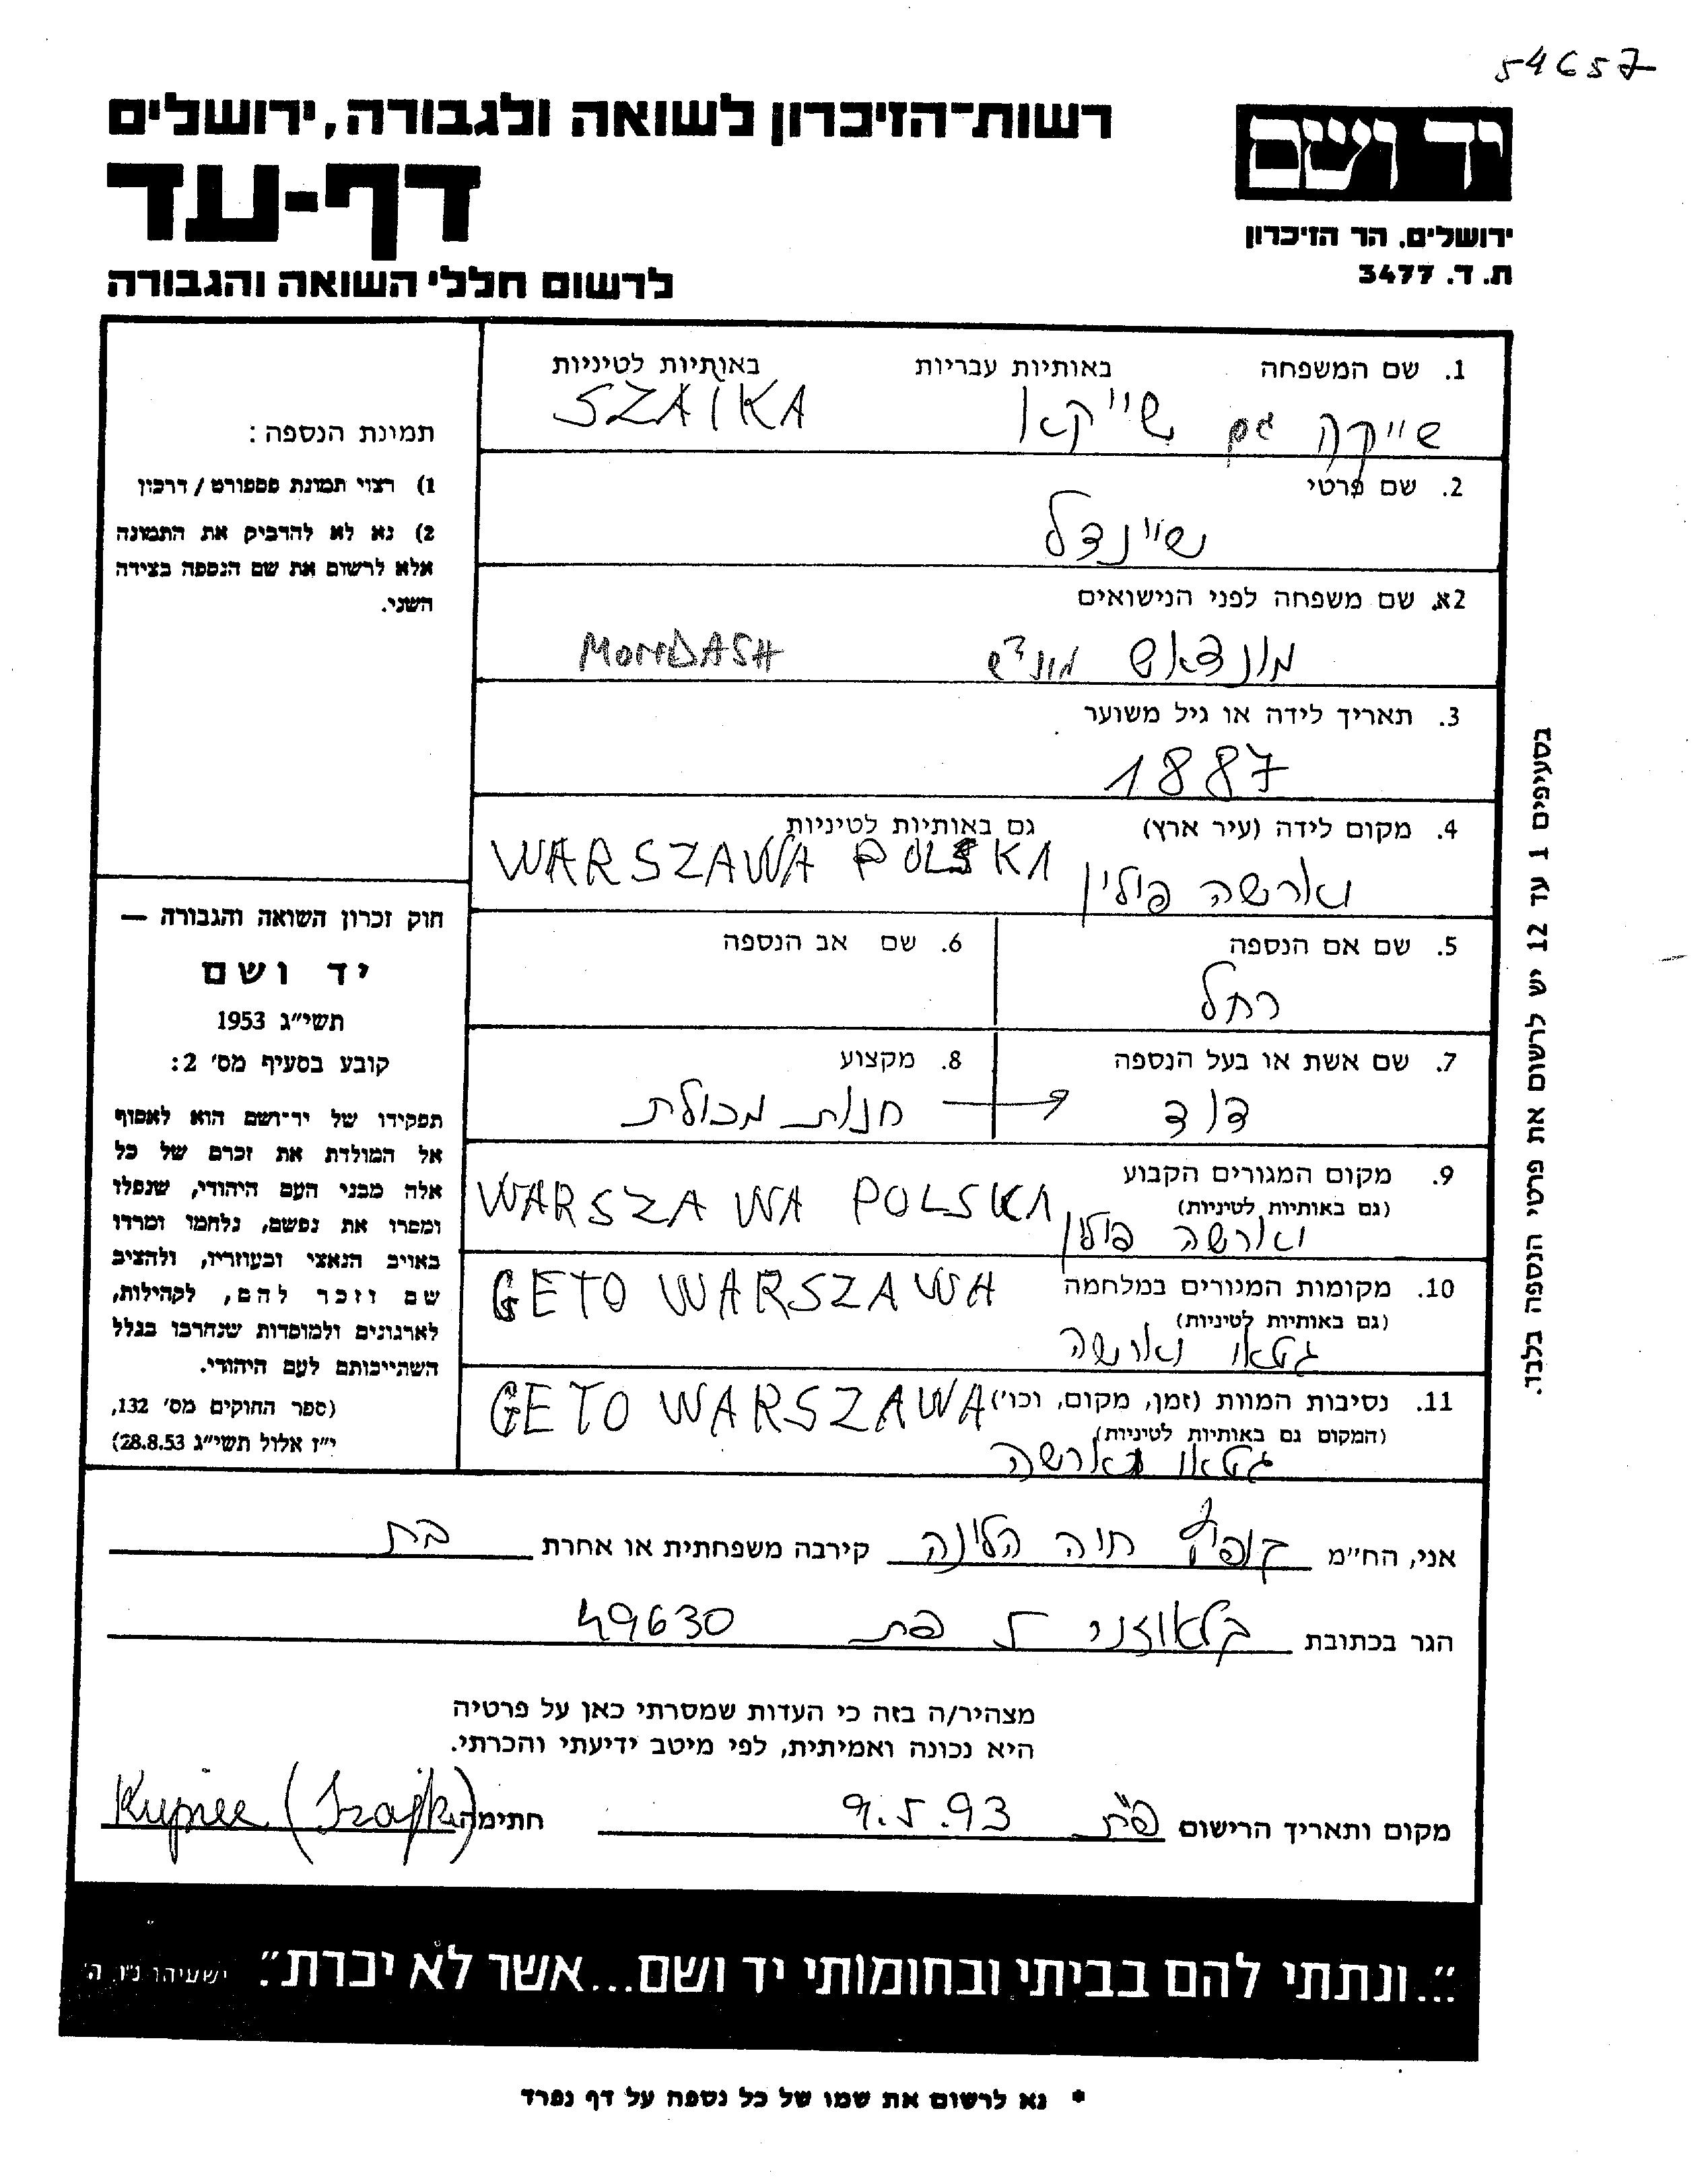 54657
רשות־הזיכרון לשואה ולגבורה, ירושלים
דף-עד
לרשום חללי השואה והגבורה
יד ושם
ירושלים. הר הזיכרון
ת. ד. 3477
1. שם המשפחה באותיות עבריות באותיות לטיניות
שייקה גם שייקא SZAIKA
2. שם פרטי
שיינדל
2א. שם משפחה לפני הנישואים
מונדאש מונדש MONDASH
3. תאריך לידה או גיל משוער
1887
4. מקום לידה (עיר ארץ) גם באותיות לטיניות
וארשה פולין WARSZAWA POLSKA
5. שם אם הנספה
רחל
6. שם אב הנספה
7. שם אשת או בעל הנספה
דוד
8. מקצוע
חנות מכולת
9. מקום המגורים הקבוע
(גם באותיות לטיניות)
וארשה פולין WARSZAWA POLSKA
10. מקומות המגורים במלחמה
(גם באותיות לטיניות)
גטאו וארשה GETO WARSZAWA
11. נסיבות המוות (זמן, מקום, וכו')
(המקום גם באותיות לטיניות)
גטאו וארשה GETO WARSZAWA
תמונת הנספה:
1) רצוי תמונת פספורט / דרכון
2) נא לא להדביק את התמונה
אלא לרשום את שם הנספה בצידה
השני.
חוק זכרון השואה והגבורה —
יד ושם
תשי"ג 1953
קובע בסעיף מס' 2:
תפקידו של יד־ושם הוא לאסוף
אל המולדת את זכרם של כל
אלה מבני העם היהודי, שנפלו
ומסרו את נפשם, נלחמו ומרדו
באויב הנאצי ובעוזריו, ולהציב
שם וזכר להם, לקהילות,
לארגונים ולמוסדות שנחרבו בגלל
השתייכותם לעם היהודי.
(ספר החוקים מס' 132,
י"ז אלול תשי"ג 28.8.53)
בסעיפים 1 עד 12 יש לרשום את פרטי הנספה בלבד.
אני, הח"מ קופיץ חיה הלינה קירבה משפחתית או אחרת בת
הגר בכתובת קלאוזנר 5 פת 49630
מצהיר/ה בזה כי העדות שמסרתי כאן על פרטיה
היא נכונה ואמיתית, לפי מיטב ידיעתי והכרתי.
מקום ותאריך הרישום פ"ת 9.5.93 חתימה Kupiec (Szajka)
"...ונתתי להם בביתי ובחומותי יד ושם...אשר לא יכרת". ישעיהו נ"ו, ה'
* נא לרשום את שמו של כל נספה על דף נפרד